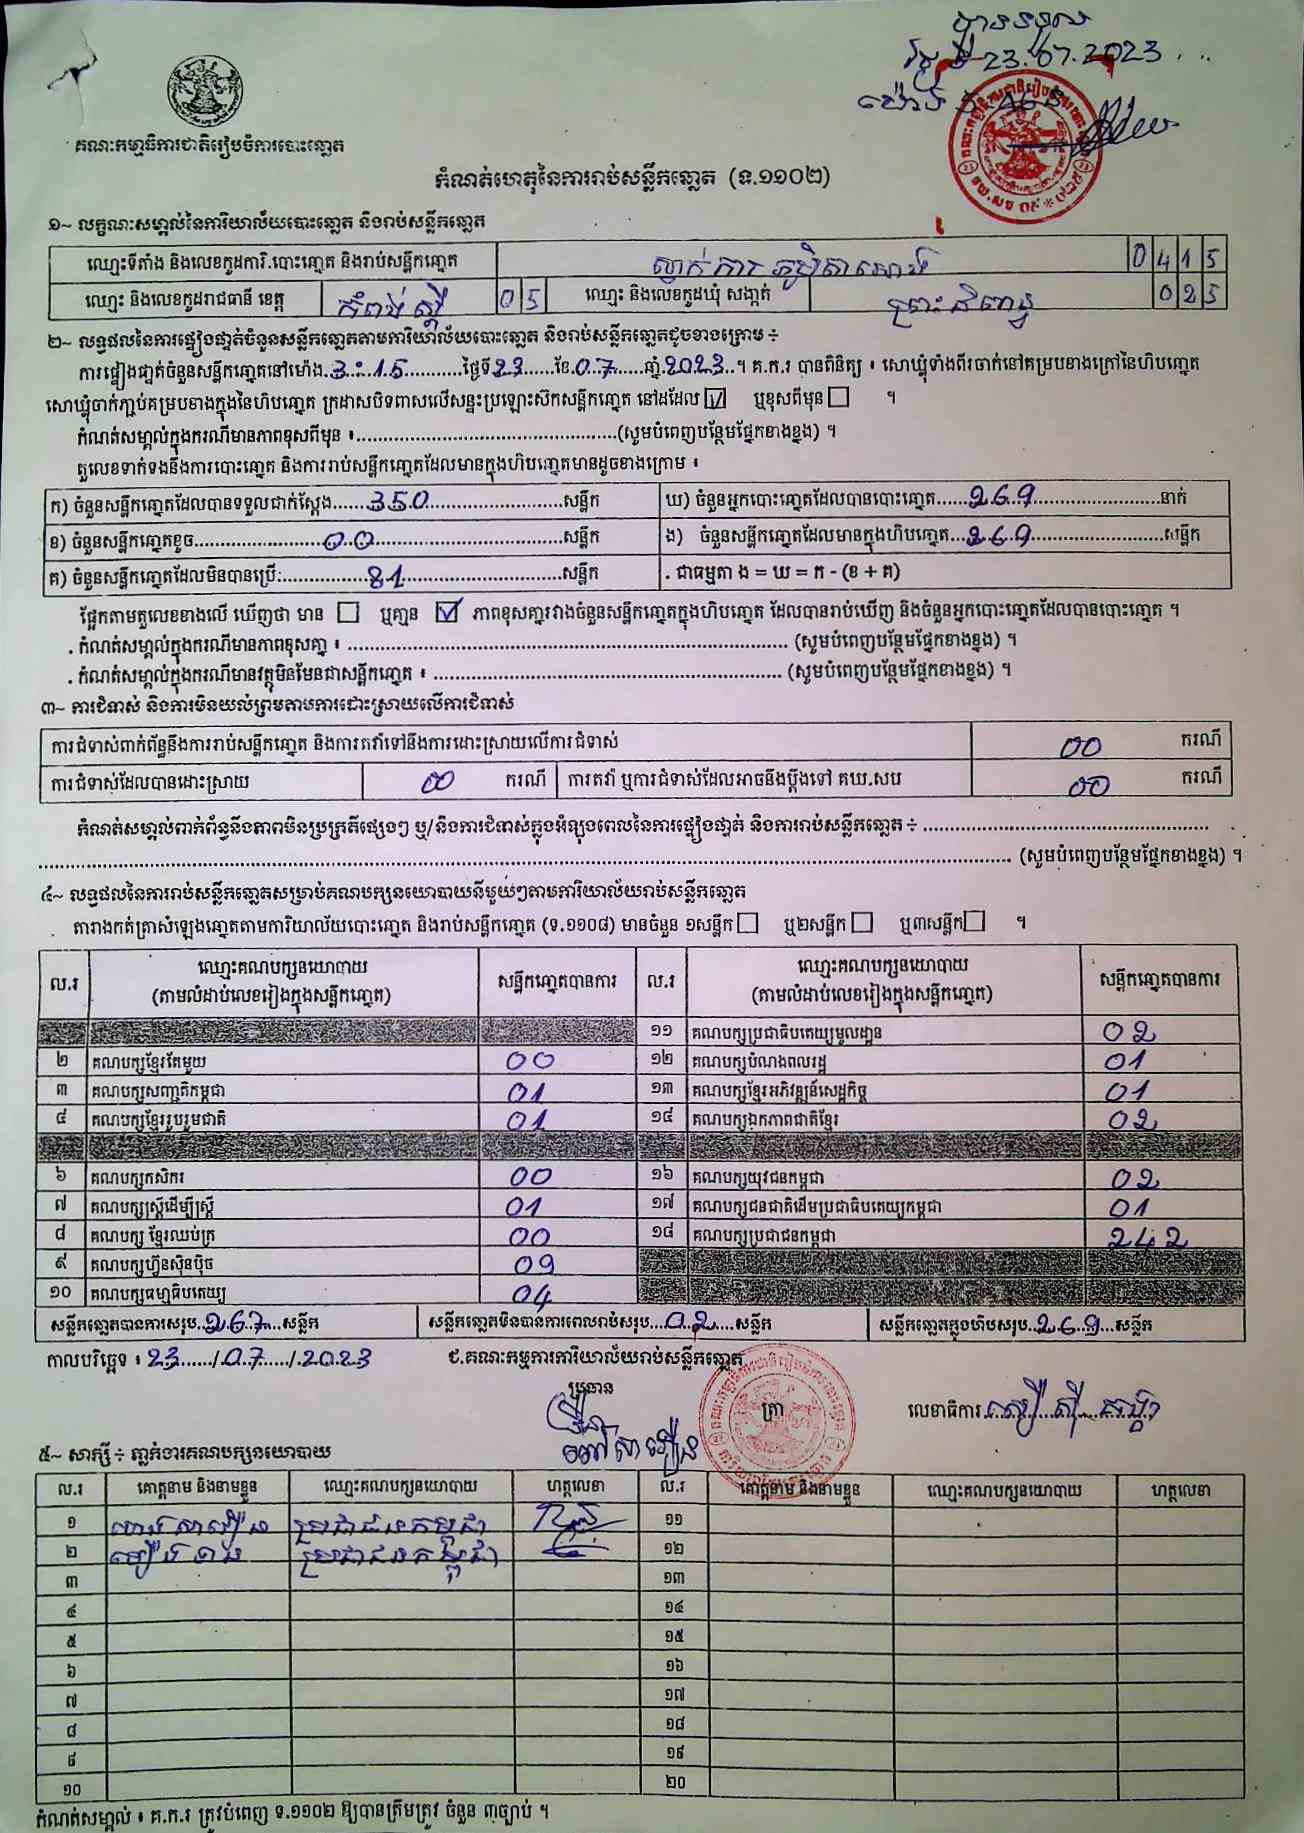 បានទទួល
ថ្ងៃទី 23.07.2023
គណៈកម្មាធិការជាតិរៀបចំការបោះឆ្នោត
កំណត់ហេតុនៃការរាប់សន្លឹកឆ្នោត (ទ.១១០២)
១~ លក្ខណៈសម្គាល់នៃការិយាល័យបោះឆ្នោត និងរាប់សន្លឹកឆ្នោត
ឈ្មោះទីតាំង និងលេខកូដការិ.បោះឆ្នោត និងរាប់សន្លឹកឆ្នោត 0415
ឈ្មោះ និងលេខកូដរាជធានី ខេត្ត កំពង់ស្ពឺ 05 ឈ្មោះ និងលេខកូដឃុំ សង្កាត់ ព្រះនិពាន្វ 025
២~ លទ្ធផលនៃការផ្ទៀងផ្ទាត់ចំនួនសន្លឹកឆ្នោតតាមការិយាល័យបោះឆ្នោត និងរាប់សន្លឹកឆ្នោតដូចខាងក្រោម ÷
ការផ្ទៀងផ្ទាត់ចំនួនសន្លឹកឆ្នោតនៅម៉ោង 3:15 ថ្ងៃទី 23 ខែ 07 ឆ្នាំ 2023 ។ គ.ក.រ បានពិនិត្យ ៖ សោឃ្លុំទាំងពីរចាក់នៅគម្របខាងក្រៅនៃហិបឆ្នោត
សោឃ្លុំចាក់ភ្ជាប់គម្របខាងក្នុងនៃហិបឆ្នោត ក្រដាសបិទពាសលើសន្ទះប្រឡោះស៊កសន្លឹកឆ្នោត នៅដដែល ☑ ឬខុសពីមុន ☐ ។
កំណត់សម្គាល់ក្នុងករណីមានភាពខុសពីមុន ៖ (សូមបំពេញបន្ថែមផ្នែកខាងខ្នង) ។
តួលេខទាក់ទងនឹងការបោះឆ្នោត និងការរាប់សន្លឹកឆ្នោតដែលមានក្នុងហិបឆ្នោតមានដូចខាងក្រោម ៖
ក) ចំនួនសន្លឹកឆ្នោតដែលបានទទួលជាក់ស្តែង 350 សន្លឹក ឃ) ចំនួនអ្នកបោះឆ្នោតដែលបានបោះឆ្នោត 269 នាក់
ខ) ចំនួនសន្លឹកឆ្នោតខូច 00 សន្លឹក ង) ចំនួនសន្លឹកឆ្នោតដែលមានក្នុងហិបឆ្នោត 269 សន្លឹក
គ) ចំនួនសន្លឹកឆ្នោតដែលមិនបានប្រើ: 81 សន្លឹក . ជាធម្មតា ង = ឃ = ក - (ខ + គ)
ផ្អែកតាមតួលេខខាងលើ ឃើញថា មាន ☐ ឬគ្មាន ☑ ភាពខុសគ្នារវាងចំនួនសន្លឹកឆ្នោតក្នុងហិបឆ្នោត ដែលបានរាប់ឃើញ និងចំនួនអ្នកបោះឆ្នោតដែលបានបោះឆ្នោត ។
. កំណត់សម្គាល់ក្នុងករណីមានភាពខុសគ្នា ៖ (សូមបំពេញបន្ថែមផ្នែកខាងខ្នង) ។
. កំណត់សម្គាល់ក្នុងករណីមានវត្ថុមិនមែនជាសន្លឹកឆ្នោត ៖ (សូមបំពេញបន្ថែមផ្នែកខាងខ្នង) ។
៣~ ការជំទាស់ និងការមិនយល់ព្រមតាមការដោះស្រាយលើការជំទាស់
ការជំទាស់ពាក់ព័ន្ធនឹងការរាប់សន្លឹកឆ្នោត និងការតវ៉ាទៅនឹងការដោះស្រាយលើការជំទាស់ 00 ករណី
ការជំទាស់ដែលបានដោះស្រាយ 00 ករណី ការតវ៉ា ឬការជំទាស់ដែលអាចនឹងប្តឹងទៅ គឃ.សប 00 ករណី
កំណត់សម្គាល់ពាក់ព័ន្ធនឹងភាពមិនប្រក្រតីផ្សេងៗ ឬ/និងការជំទាស់ក្នុងអំឡុងពេលនៃការផ្ទៀងផ្ទាត់ និងការរាប់សន្លឹកឆ្នោត ÷
(សូមបំពេញបន្ថែមផ្នែកខាងខ្នង) ។
៤~ លទ្ធផលនៃការរាប់សន្លឹកឆ្នោតសម្រាប់គណបក្សនយោបាយនីមួយៗតាមការិយាល័យរាប់សន្លឹកឆ្នោត
តារាងកត់ត្រាសំឡេងឆ្នោតតាមការិយាល័យបោះឆ្នោត និងរាប់សន្លឹកឆ្នោត (ទ.១១០៨) មានចំនួន ១សន្លឹក ☐ ឬ២សន្លឹក ☐ ឬ៣សន្លឹក ☐ ។
ល.រ ឈ្មោះគណបក្សនយោបាយ (តាមលំដាប់លេខរៀងក្នុងសន្លឹកឆ្នោត) សន្លឹកឆ្នោតបានការ ល.រ ឈ្មោះគណបក្សនយោបាយ (តាមលំដាប់លេខរៀងក្នុងសន្លឹកឆ្នោត) សន្លឹកឆ្នោតបានការ
១១ គណបក្សប្រជាធិបតេយ្យមូលដ្ឋាន 02
២ គណបក្សខ្មែរតែមួយ 00 ១២ គណបក្សបំណងពលរដ្ឋ 01
៣ គណបក្សសញ្ជាតិកម្ពុជា 01 ១៣ គណបក្សខ្មែរអភិវឌ្ឍន៍សេដ្ឋកិច្ច 01
៤ គណបក្សខ្មែររួបរួមជាតិ 01 ១៤ គណបក្សឯកភាពជាតិខ្មែរ 02
៦ គណបក្សកសិករ 00 ១៦ គណបក្សយុវជនកម្ពុជា 02
៧ គណបក្សស្ត្រីដើម្បីស្ត្រី 01 ១៧ គណបក្សជនជាតិដើមប្រជាធិបតេយ្យកម្ពុជា 01
៨ គណបក្ស ខ្មែរឈប់ក្រ 00 ១៨ គណបក្សប្រជាជនកម្ពុជា 242
៩ គណបក្សហ្វ៊ុនស៊ិនប៉ិច 09
១០ គណបក្សធម្មាធិបតេយ្យ 04
សន្លឹកឆ្នោតបានការសរុប 267 សន្លឹក សន្លឹកឆ្នោតមិនបានការពេលរាប់សរុប 02 សន្លឹក សន្លឹកឆ្នោតក្នុងហិបសរុប 269 សន្លឹក
កាលបរិច្ឆេទ ៖ 23/07/2023 ជ.គណៈកម្មការការិយាល័យរាប់សន្លឹកឆ្នោត
ប្រធាន ត្រា លេខាធិការ
៥~ សាក្សី ÷ ភ្នាក់ងារគណបក្សនយោបាយ
ល.រ គោត្តនាម និងនាមខ្លួន ឈ្មោះគណបក្សនយោបាយ ហត្ថលេខា ល.រ គោត្តនាម និងនាមខ្លួន ឈ្មោះគណបក្សនយោបាយ ហត្ថលេខា
១ ប្រជាជនកម្ពុជា ១១
២ ប្រជាជនកម្ពុជា ១២
៣ ១៣
៤ ១៤
៥ ១៥
៦ ១៦
៧ ១៧
៨ ១៨
៩ ១៩
១០ ២០
កំណត់សម្គាល់ ៖ គ.ក.រ ត្រូវបំពេញ ទ.១១០២ ឱ្យបានត្រឹមត្រូវ ចំនួន ៣ច្បាប់ ។